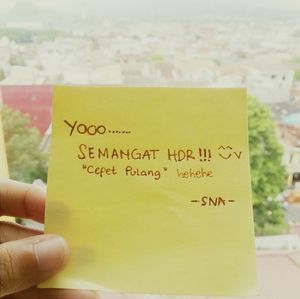 Yooo......
SEMANGAT HDR!!! ^^v
"Cepet Pulang" hehehe
-SNA-